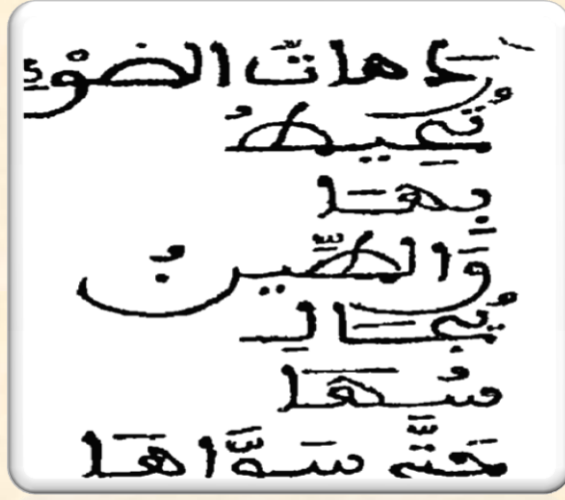 رَدهاتّ الضوْء
تُحِيطُ
بِهَا
وَالطِّينُ
يُجَالِـ
سُهَا
حَتَّى سَوَّاهَا